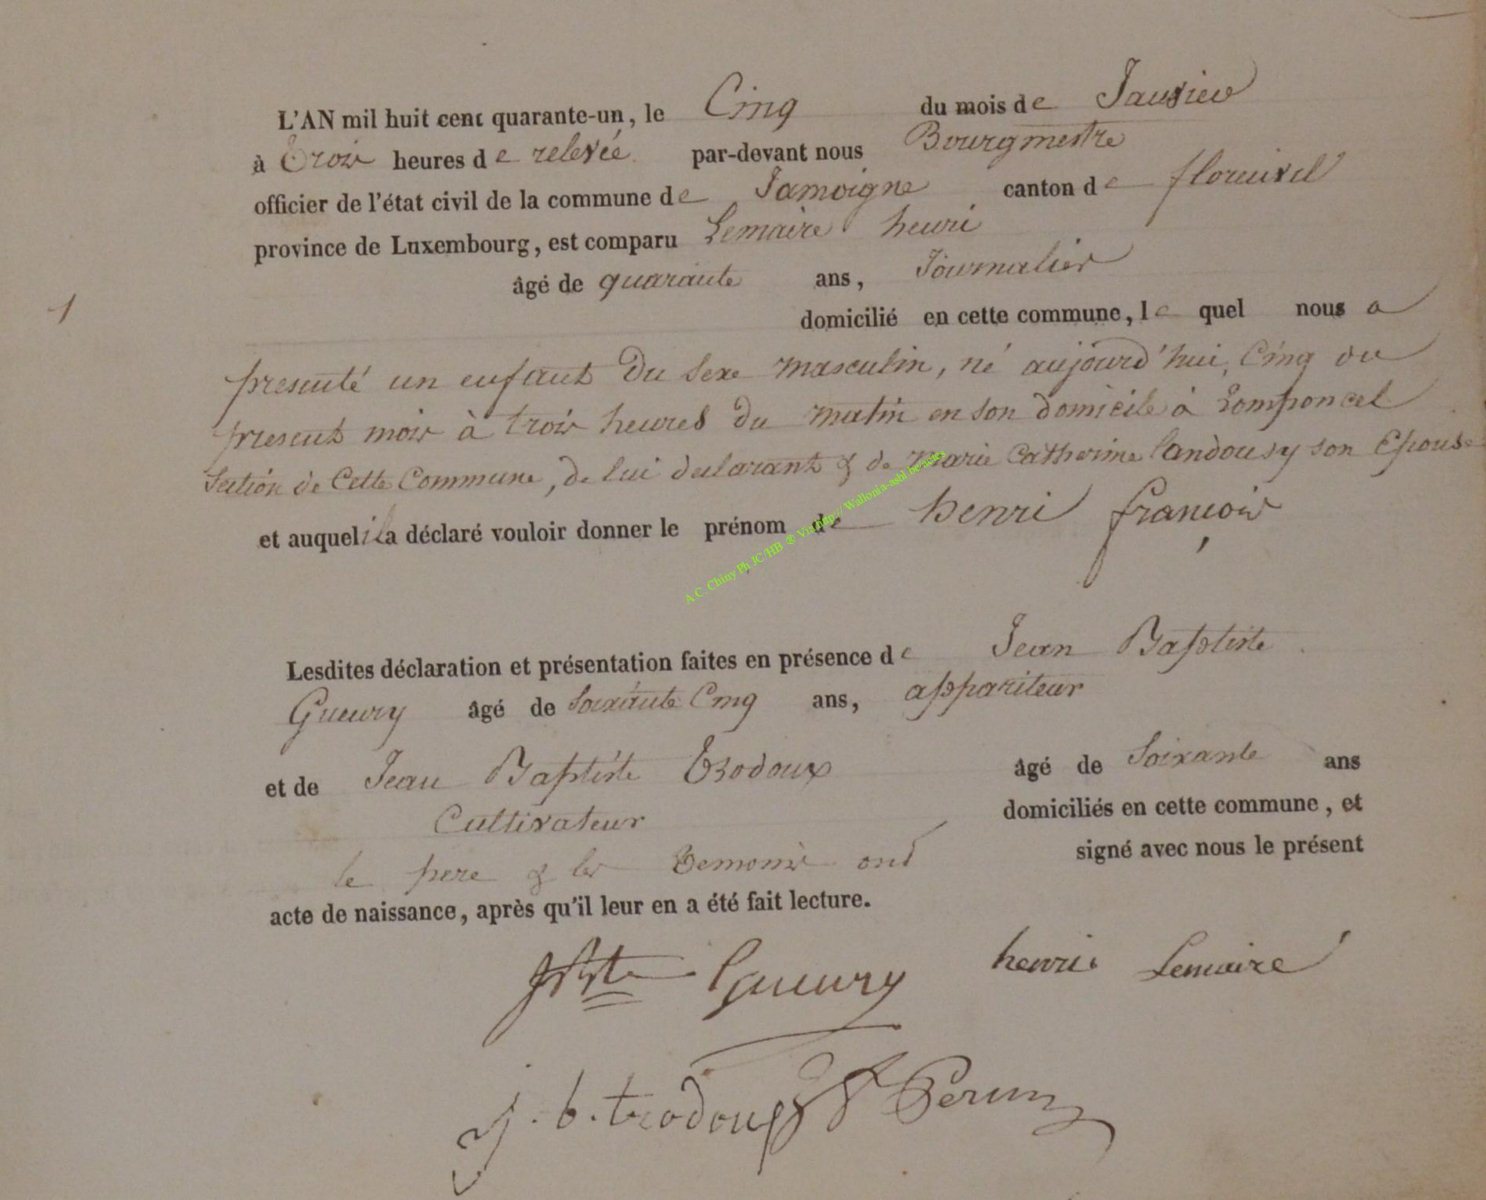 L'AN mil huit cent quarante-un, le Cinq du mois de Janvier
à trois heures de relevée par-devant nous Bourgmestre
officier de l'état civil de la commune de Jamoigne canton de florenvil
province de Luxembourg, est comparu Lemaire henri
âgé de quarante ans, Journalier
1
domicilié en cette commune, le quel nous a
presenté un enfant du sexe masculin, né aujourd'hui, Cinq du
present mois à trois heures du matin en son domicile à Romponcel
Section de Cette Commune, de lui declarant & de Marie Catherine Landousy son Epouse
et auquel il a déclaré vouloir donner le prénom de henri françois
A.C. Chiny Ph JC/HB ® Via http://Wallonia-asbl.be
Lesdites déclaration et présentation faites en présence de Jean Baptiste
Gueury âgé de Soixante Cinq ans, appariteur
et de Jean Baptiste Trodoux âgé de Soixante ans
Cultivateur domiciliés en cette commune, et
le pere & les temoins ont signé avec nous le présent
acte de naissance, après qu'il leur en a été fait lecture.
JBte Gueury henri Lemaire
j. b. trodoux